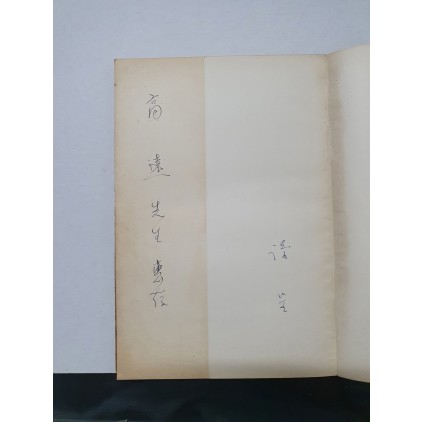 高遠先生惠存
謹呈